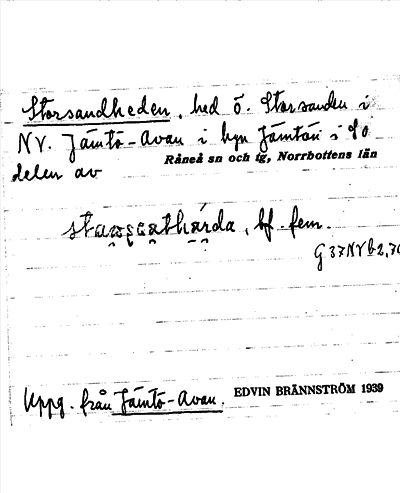 Storsandheden, hed ö. Storsanden i
NV. Jämtö-Avan i byn Jämtön i SO
delen av Råneå sn och tg, Norrbottens län
bf. fem.
G 37NVb2,70
Uppg. från Jämtö-Avan. EDVIN BRÄNNSTRÖM 1939